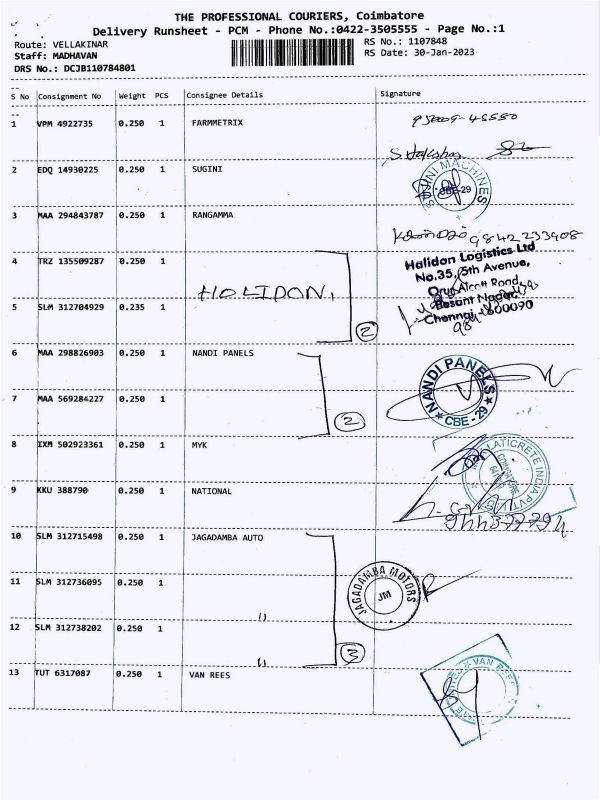 THE PROFESSIONAL COURIERS, Coimbatore
Delivery Runsheet - PCM - Phone No.:0422-3505555 - Page No.:1
Route: VELLAKINAR
RS No.: 1107848
Staff: MADHAVAN
RS Date: 30-Jan-2023
DRS No.: DCJB110784801
S No Consignment No Weight PCS Consignee Details Signature
1 VPM 4922735 0.250 1 FARMMETRIX
2 EDQ 14930225 0.250 1 SUGINI
MACHINES
CBE-29
3 MAA 294843787 0.250 1 RANGAMMA
9842233908
4 TRZ 135509287 0.250 1
HOLIDON,
Halidon Logistics Ltd
No.35, 5th Avenue,
Road,
Besant Nagar,
Chennai - 600090
5 SLM 312704929 0.235 1
2
6 MAA 298826903 0.250 1 NANDI PANELS
NANDI PANELS
CBE - 29
7 MAA 569284227 0.250 1
2
8 IXM 502923361 0.250 1 MYK
LATICRETE INDIA PVT
COIMBATORE
9 KKU 388790 0.250 1 NATIONAL
10 SLM 312715498 0.250 1 JAGADAMBA AUTO
11 SLM 312736095 0.250 1
JAGADAMBA MOTORS
JM
12 SLM 312738202 0.250 1
3
13 TUT 6317087 0.250 1 VAN REES
VAN REES